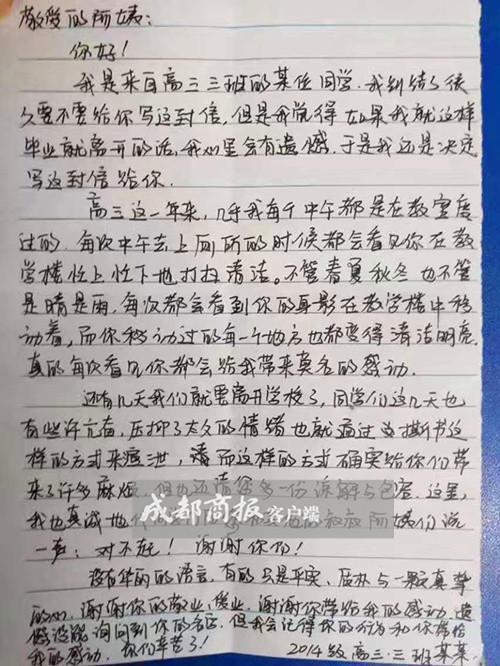 敬爱的阿姨：
你好！
我是来自高三三班的某位同学，我纠结了很
久要不要给你写这封信，但是我觉得如果我就这样
毕业就离开的话，我心里会有遗憾，于是我还是决定
写这封信给你．
高三这一年来，几乎我每个中午都是在教室度
过的．每次中午去上厕所的时候都会看见你在教
学楼忙上忙下地打扫清洁。不管春夏秋冬 也不管
是晴是雨，每次都会看到你的身影在教学楼中移
动着，而你移动过的每一个地方也都变得清洁明亮．
真的每次看见你都会给我带来莫名的感动．
还有几天我们就要离开学校了，同学们这几天也
有些许亢奋，压抑了太久的情绪也就通过 撕书这
样的方式来 泄， 而这样的方式确实给你们带
来了许多麻烦．但也还请您多一份谅解与包容．这里，
我也真诚地 叔叔阿姨们说
一声：对不起！谢谢你们！
成都商报客户端
没有华丽的语言，有的只是平实、质朴与一颗真挚
的心，谢谢你的敬业、 业，谢谢你带给我的感动．遗
憾没能询问到你的名字．但我会记得你的行为和你带给
我的感动．你们辛苦了！
2014级高三·三班某某